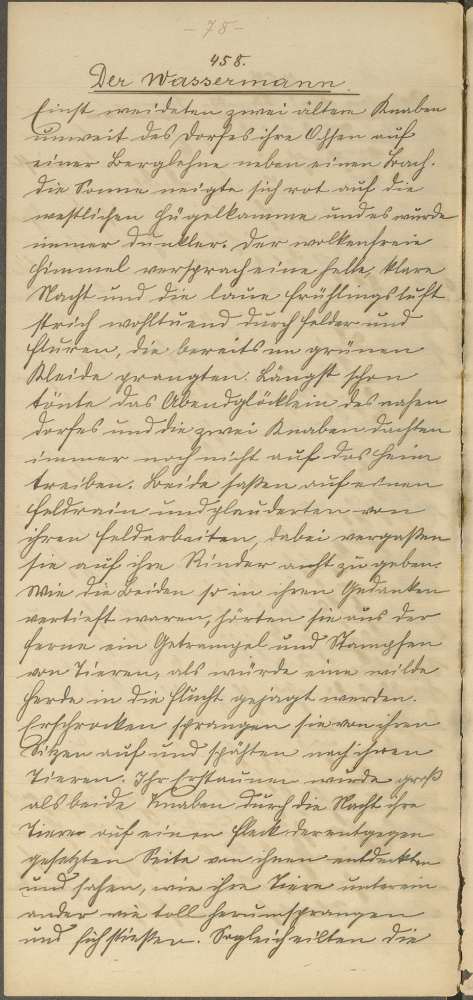 - 78 -
458.
Der Wassermann.
Einst weideten zwei ältere Knaben
unweit des Dorfes ihre Ochsen auf
einer Berglehne neben einen Bach.
Die Sonne neigte sich rot auf die
westlichen Hügelkamme und es wurde
immer dunkler. Der wolkenfreie
Himmel versprach eine helle, klare
Nacht und die laue Frühlingsluft
strich wohltuend durch Felder und
Fluren, die bereits im grünen
Kleide prangten. Längst schon
tönte das Abendglöcklein des nahen
Dorfes und die zwei Knaben dachten
immer noch nicht auf das Heim
treiben. Beide saßen auf einen
Feldrain und plauderten von
ihren Feldarbeiten, dabei vergaßen
sie auf ihre Rinder acht zu geben.
Wie die Beiden so in ihren Gedanken
vertieft waren, hörten sie aus der
Ferne ein Getrampel und Stampfen
von Tieren, als würde eine wilde
Herde in die Flucht gejagt werden.
Erschrocken sprangen sie von ihren
Sitzen auf und spähten nach ihren
Tieren. Ihr Erstaunen wurde groß
als beide Knaben durch die Nacht ihre
Tiere auf einen Fleck der entgegen
gesetzten Seite von ihnen entdeckten
und sahen, wie ihre Tiere unterein
ander wie toll herumsprangen
und sich stießen. Sogleich eilten die